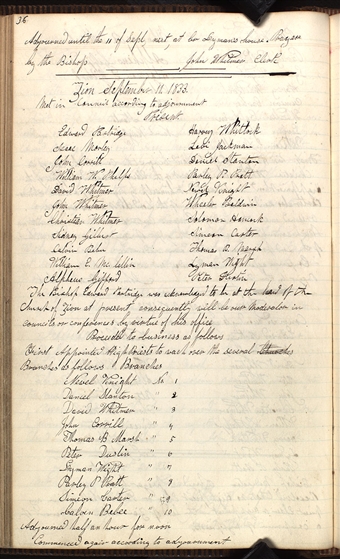 36
Adjourned until the 11 of Sept. meet at br Lymans house. Prayer
by the Bishop John Whitmer Clerk
Zion September 11. 1833.
Met in Council according to adjournment
Present
Edward Partridge Harvey Whitlock
Isaac Morley Levi Jackman
John Corrill Daniel Stanton
William W. Phelps Parley P. Pratt
David Whitmer Newel Knight
John Whitmer Wheeler Baldwin
Christian Whitmer Solomon Hancock
Sidney Gilbert Simeon Carter
Calvin Bebee Thomas B. Marsh
William E. McLellin Lyman Wight
Alpheus Gifford Peter Dustin
The Bishop Edward Partridge was acknowledged to be at the head of the
Church of Zion at present, consequently will be our Moderator in
councils or conferences by virtue of his office
Proceeded to business as follows
First Appointed High Priests to watch over the several Church
Branches as follows Branches
Newel Knight No 1
Daniel Stanton " 2
David Whitmer " 3
John Corrill " 4
Thomas B Marsh " 5
Peter Dustin " 6
Lyman Wight " 7
Parley P Pratt " 8
Simeon Carter " 9
Calvin Bebee " 10
Adjourned half an hour for noon
Commenced again according to adjournment